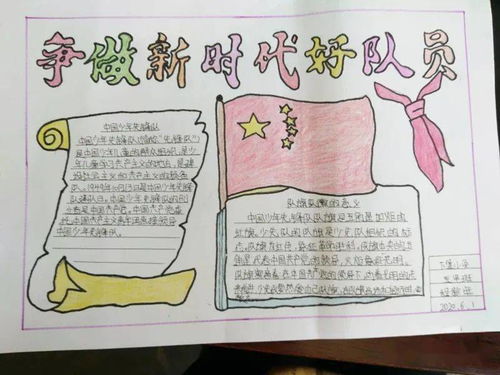 争做新时代好队员
中国少年先锋队
中国少年先锋队(简称"少先队")
是中国少年儿童的群众组织,是少
年儿童学习共产主义的地方,是建
设社会主义和共产主义的预备
队。1949年10月13日是中国少年先锋
队建队日。中国少年先锋队的创
立者是中国共产党。中国共产党委
托中国共产主义青年团直接领导
中国少年先锋队。
队旗队徽的意义
中国少年先锋队队旗是五角星加火炬的
红旗。少先队的队旗是少先队组织的标
志。队旗为红色,象征革命胜利。队旗中央的五
角星代表中国共产党的领导,火炬象征光明。
队旗
在中国共产党的领导下
2020.6.1